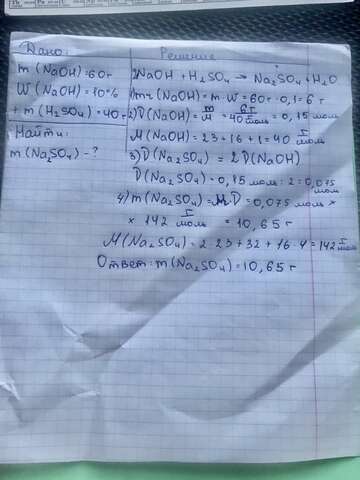 Дано:
m (NaOH)=60г
W (NaOH)=10%
+ m(H₂SO₄)=40г
Найти:
m(Na₂SO₄)-?
Решение
NaOH + H₂SO₄ → Na₂SO₄ + H₂O
(NaOH)=m·W=60г·0,1=6г
2) ν(NaOH)=m/M=6г/40 г/моль=0,15 моль
M(NaOH)=23+16+1=40 г/моль
3) ν(Na₂SO₄)=2ν(NaOH)
ν(Na₂SO₄)=0,15 моль:2=0,075 моль
4) m(Na₂SO₄)=M·ν=0,075 моль ×
× 142 г/моль = 10,65 г
M(Na₂SO₄)=2·23+32+16·4=142 г/моль
Ответ: m(Na₂SO₄)=10,65 г